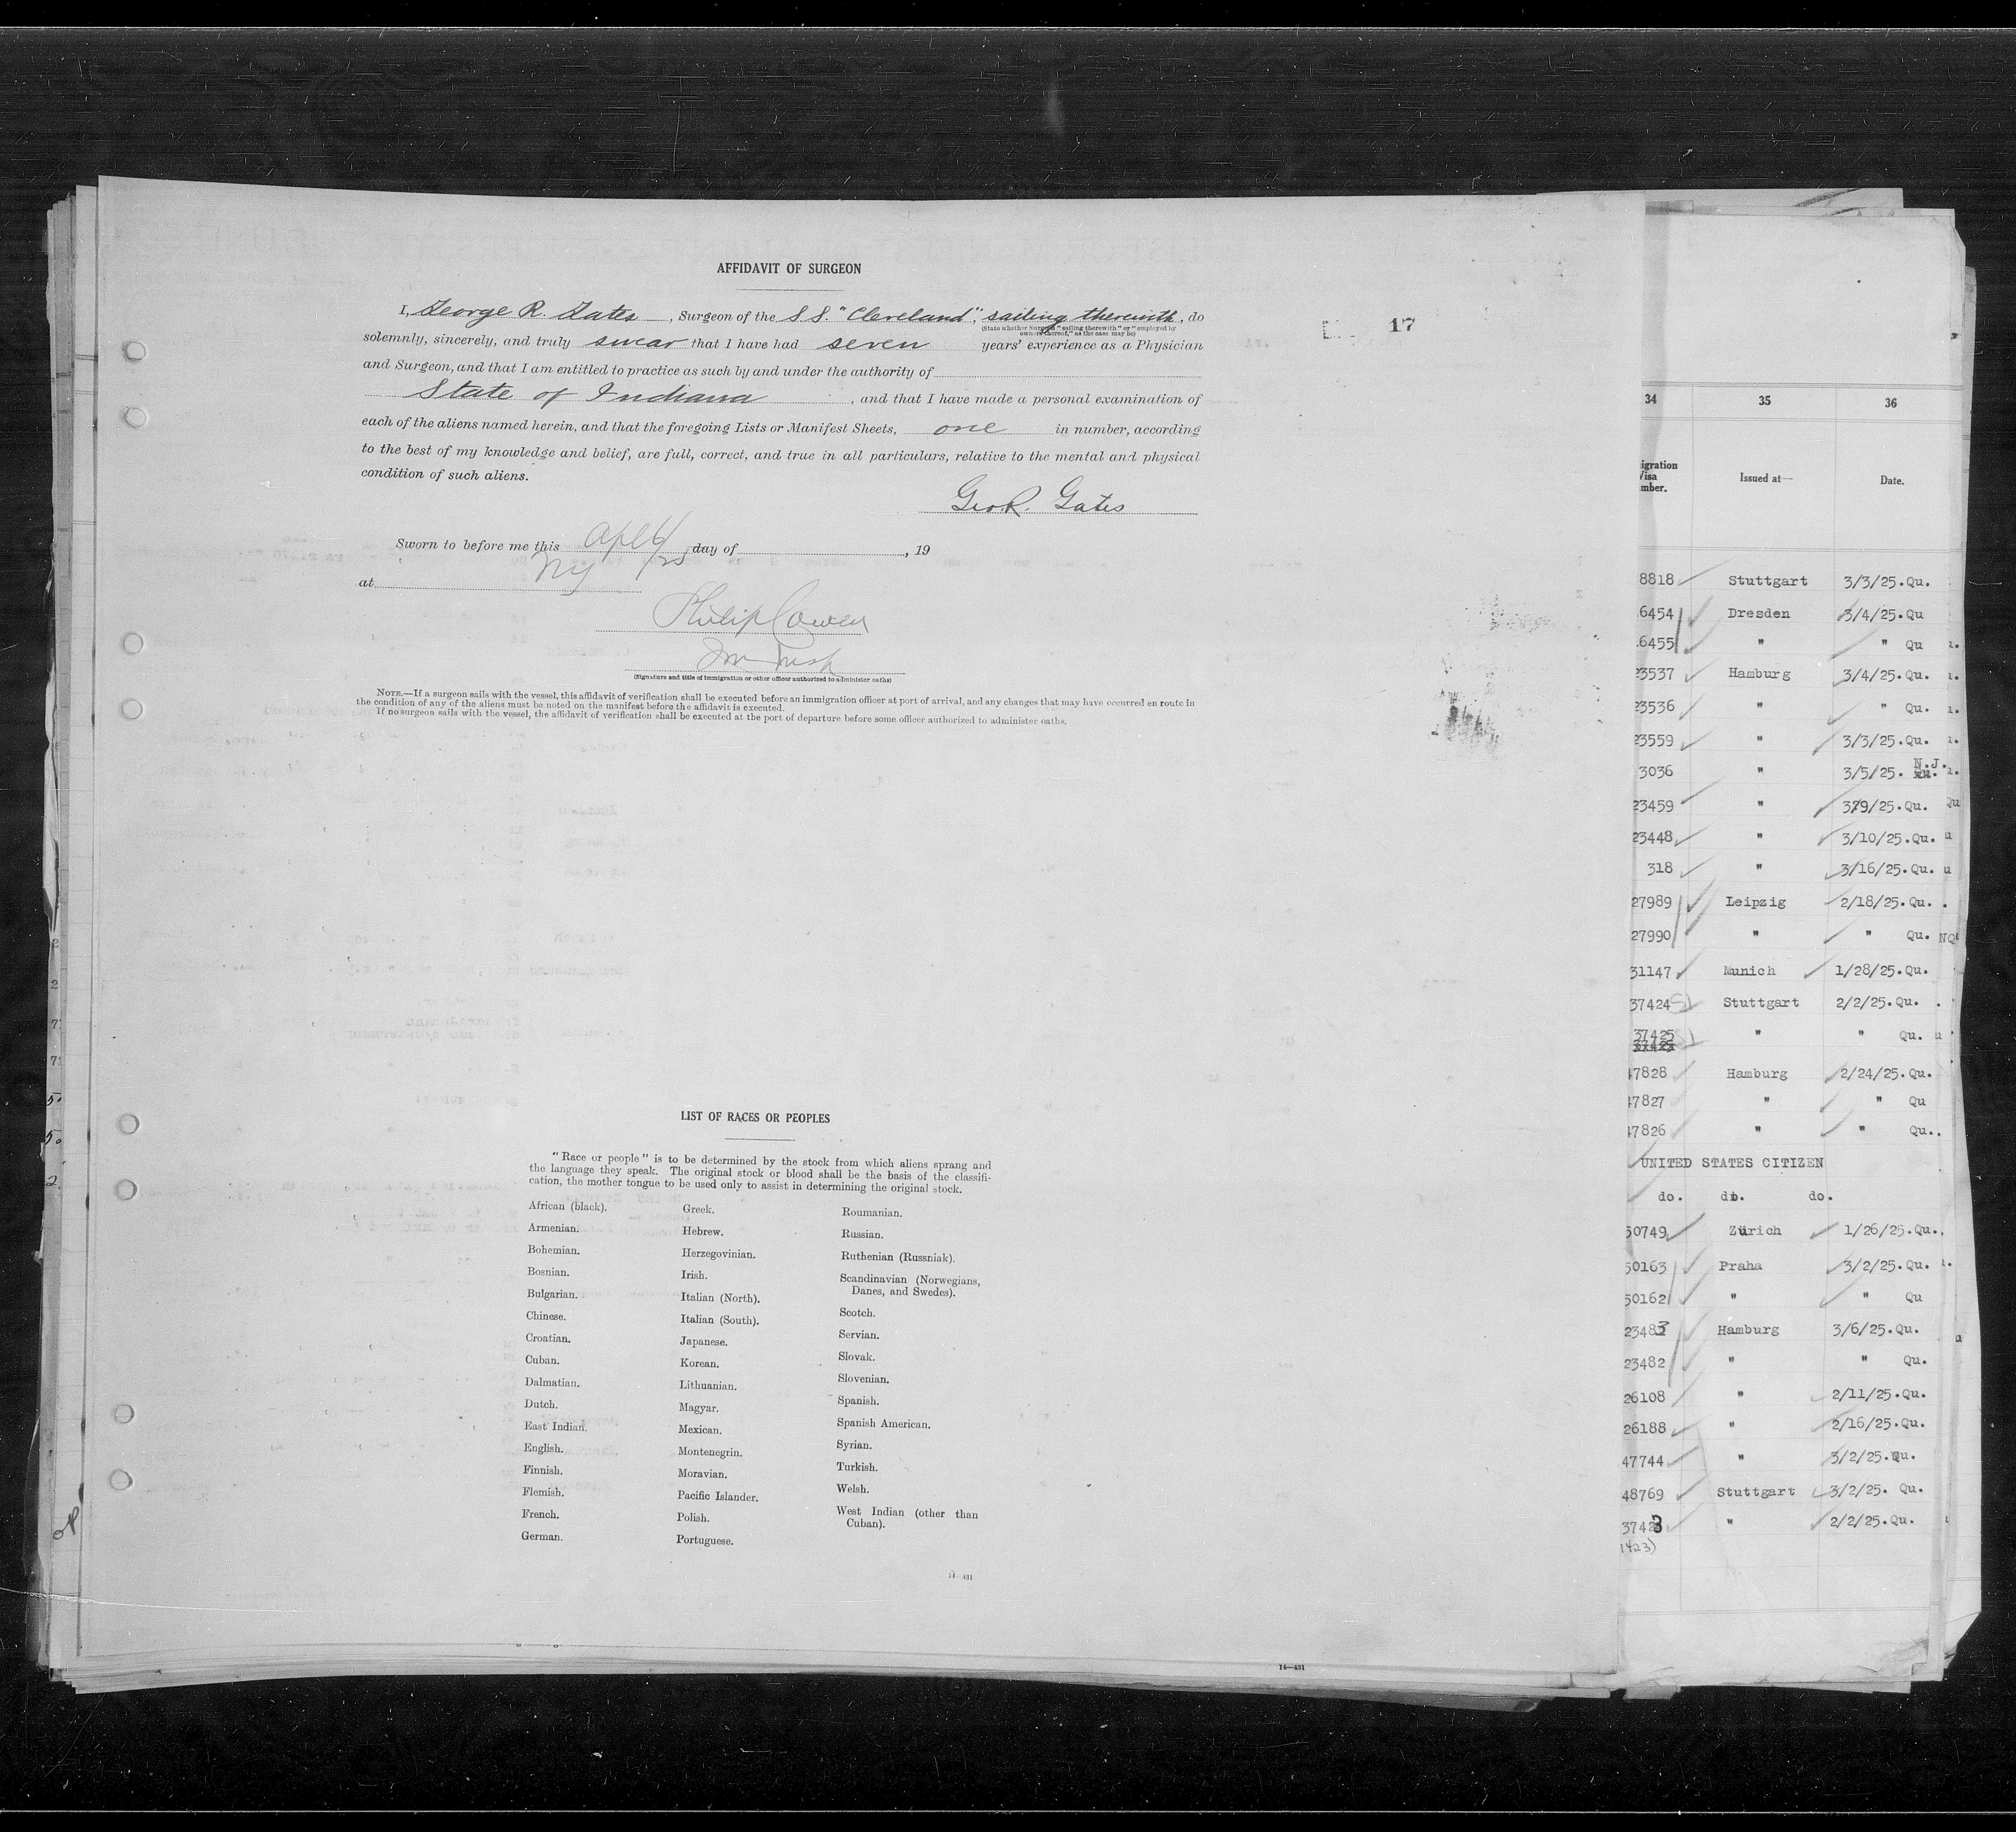 AFFIDAVIT OF SURGEON
I, George R. Gates, Surgeon of the S.S. "Cleveland", sailing therewith, do
(State whether Surgeon "sailing therewith" or "employed by
owners thereof," as the case may be)
solemnly, sincerely, and truly swear that I have had seven years' experience as a Physician
and Surgeon, and that I am entitled to practice as such by and under the authority of
State of Indiana, and that I have made a personal examination of
each of the aliens named herein, and that the foregoing Lists or Manifest Sheets, one in number, according
to the best of my knowledge and belief, are full, correct, and true in all particulars, relative to the mental and physical
condition of such aliens.
Geo R. Gates
Sworn to before me this Apl 6/25 day of , 19
at NY
Philip Cowen
(Signature and title of immigration or other officer authorized to administer oaths)
NOTE.—If a surgeon sails with the vessel, this affidavit of verification shall be executed before an immigration officer at port of arrival, and any changes that may have occurred en route in
the condition of any of the aliens must be noted on the manifest before the affidavit is executed.
If no surgeon sails with the vessel, the affidavit of verification shall be executed at the port of departure before some officer authorized to administer oaths.
17
LIST OF RACES OR PEOPLES
"Race or people" is to be determined by the stock from which aliens sprang and
the language they speak. The original stock or blood shall be the basis of the classifi-
cation, the mother tongue to be used only to assist in determining the original stock.
African (black).
Armenian.
Bohemian.
Bosnian.
Bulgarian.
Chinese.
Croatian.
Cuban.
Dalmatian.
Dutch.
East Indian.
English.
Finnish.
Flemish.
French.
German.
Greek.
Hebrew.
Herzegovinian.
Irish.
Italian (North).
Italian (South).
Japanese.
Korean.
Lithuanian.
Magyar.
Mexican.
Montenegrin.
Moravian.
Pacific Islander.
Polish.
Portuguese.
Roumanian.
Russian.
Ruthenian (Russniak).
Scandinavian (Norwegians,
Danes, and Swedes).
Scotch.
Servian.
Slovak.
Slovenian.
Spanish.
Spanish American.
Syrian.
Turkish.
Welsh.
West Indian (other than
Cuban).
14—431
34 35 36
igration
Visa
mber. Issued at— Date.
8818 Stuttgart 3/3/25.Qu.
6454 Dresden 3/4/25.Qu
6455 " " Qu
23537 Hamburg 3/4/25.Qu.
23536 " " Qu.
23559 " 3/3/25.Qu.
3036 " 3/5/25. N.J.
23459 " 3/9/25.Qu.
23448 " 3/10/25.Qu.
318 " 3/16/25.Qu.
27989 Leipzig 2/18/25.Qu.
27990 " " Qu.
31147 Munich 1/28/25.Qu.
37424 Stuttgart 2/2/25.Qu.
37425 " " Qu.
47828 Hamburg 2/24/25.Qu.
47827 " " Qu
47826 " " Qu.
UNITED STATES CITIZEN
do. do. do.
50749 Zürich 1/26/25.Qu.
50163 Praha 3/2/25.Qu.
50162 " " Qu
23483 Hamburg 3/6/25.Qu.
23482 " " Qu.
26108 " 2/11/25.Qu.
26188 " 2/16/25.Qu.
47744 " 3/2/25.Qu.
48769 Stuttgart 3/2/25. Qu.
37423 " 2/2/25.Qu.
1423)
14—431